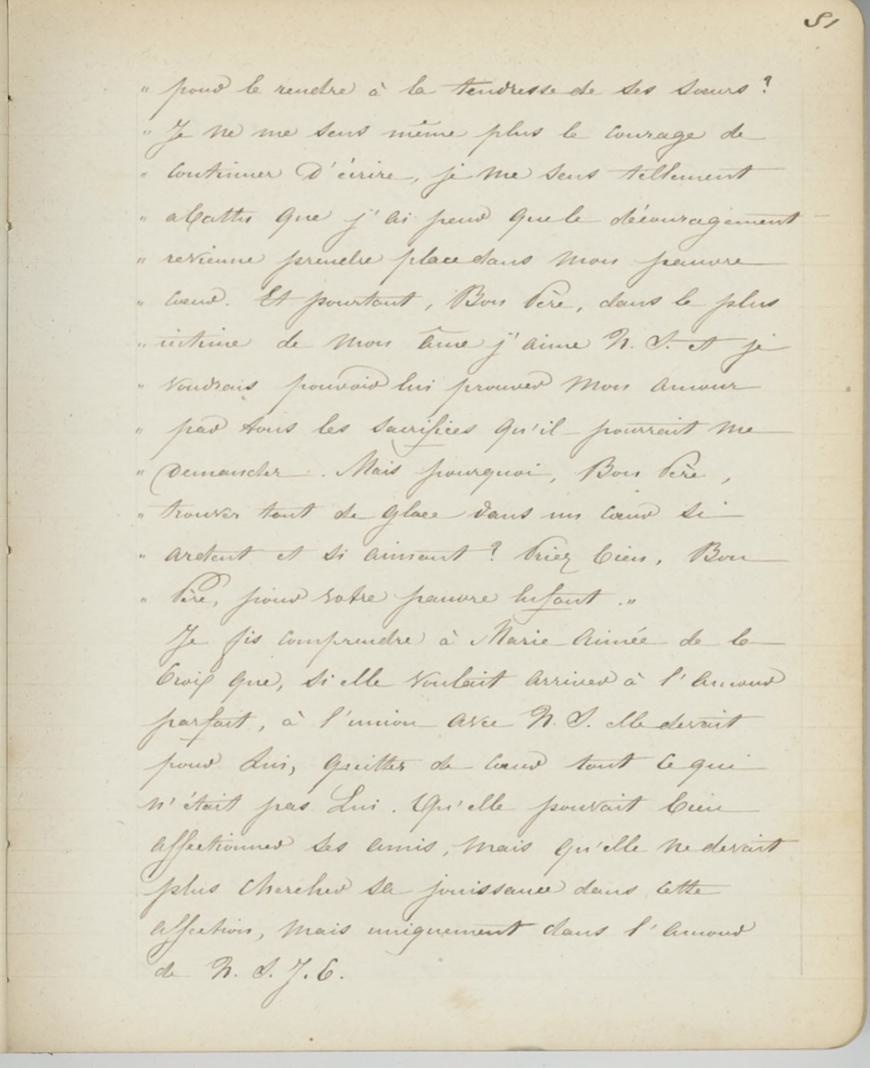 81
" pour le rendre à la tendresse de ses sœurs ?
" Je ne me sens même plus le courage de
" continuer d'écrire, je me sens tellement
" abattu que j'ai peur que le découragement
" revienne prendre place dans mon pauvre
" cœur. Et pourtant, Bon Père, dans le plus
" intime de mon âme j'aime N. S. et je
" voudrais pouvoir lui prouver mon amour
" par tous les sacrifices qu'il pourrait me
" demander. Mais pourquoi, Bon Père,
" trouver tant de glace dans un cœur si
" ardent et si aimant ? Priez bien, Bon
" Père, pour votre pauvre Enfant."
Je fis comprendre à Marie Aimée de la
Croix que, si elle voulait arriver à l'amour
parfait, à l'union avec N. S. elle devait
pour Lui, quitter de cœur tout ce qui
n'était pas Lui. Qu'elle pouvait bien
affectionner ses amis, mais qu'elle ne devait
plus chercher sa jouissance dans cette
affection, mais uniquement dans l'amour
de N. S. J. C.